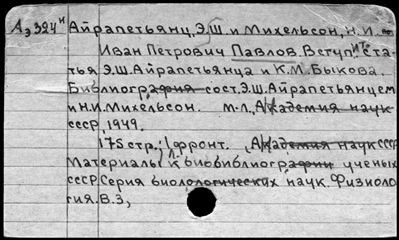 Аэ324н Айрапетьянц, Э.Ш. и Михельсон, Н.И.
Иван Петрович Павлов. Вступит. ста-
тья Э.Ш. Айрапетьянца и К.М. Быкова.
Библиография сост. Э.Ш. Айрапетьянцем
и Н.И. Михельсон. М.-Л., Академия наук
СССР, 1949.
175 стр.; 1 фронт. (Академия наук СССР
Материалы к биобиблиографии ученых
СССР. Серия биологических наук. Физиоло-
гия. В.3)